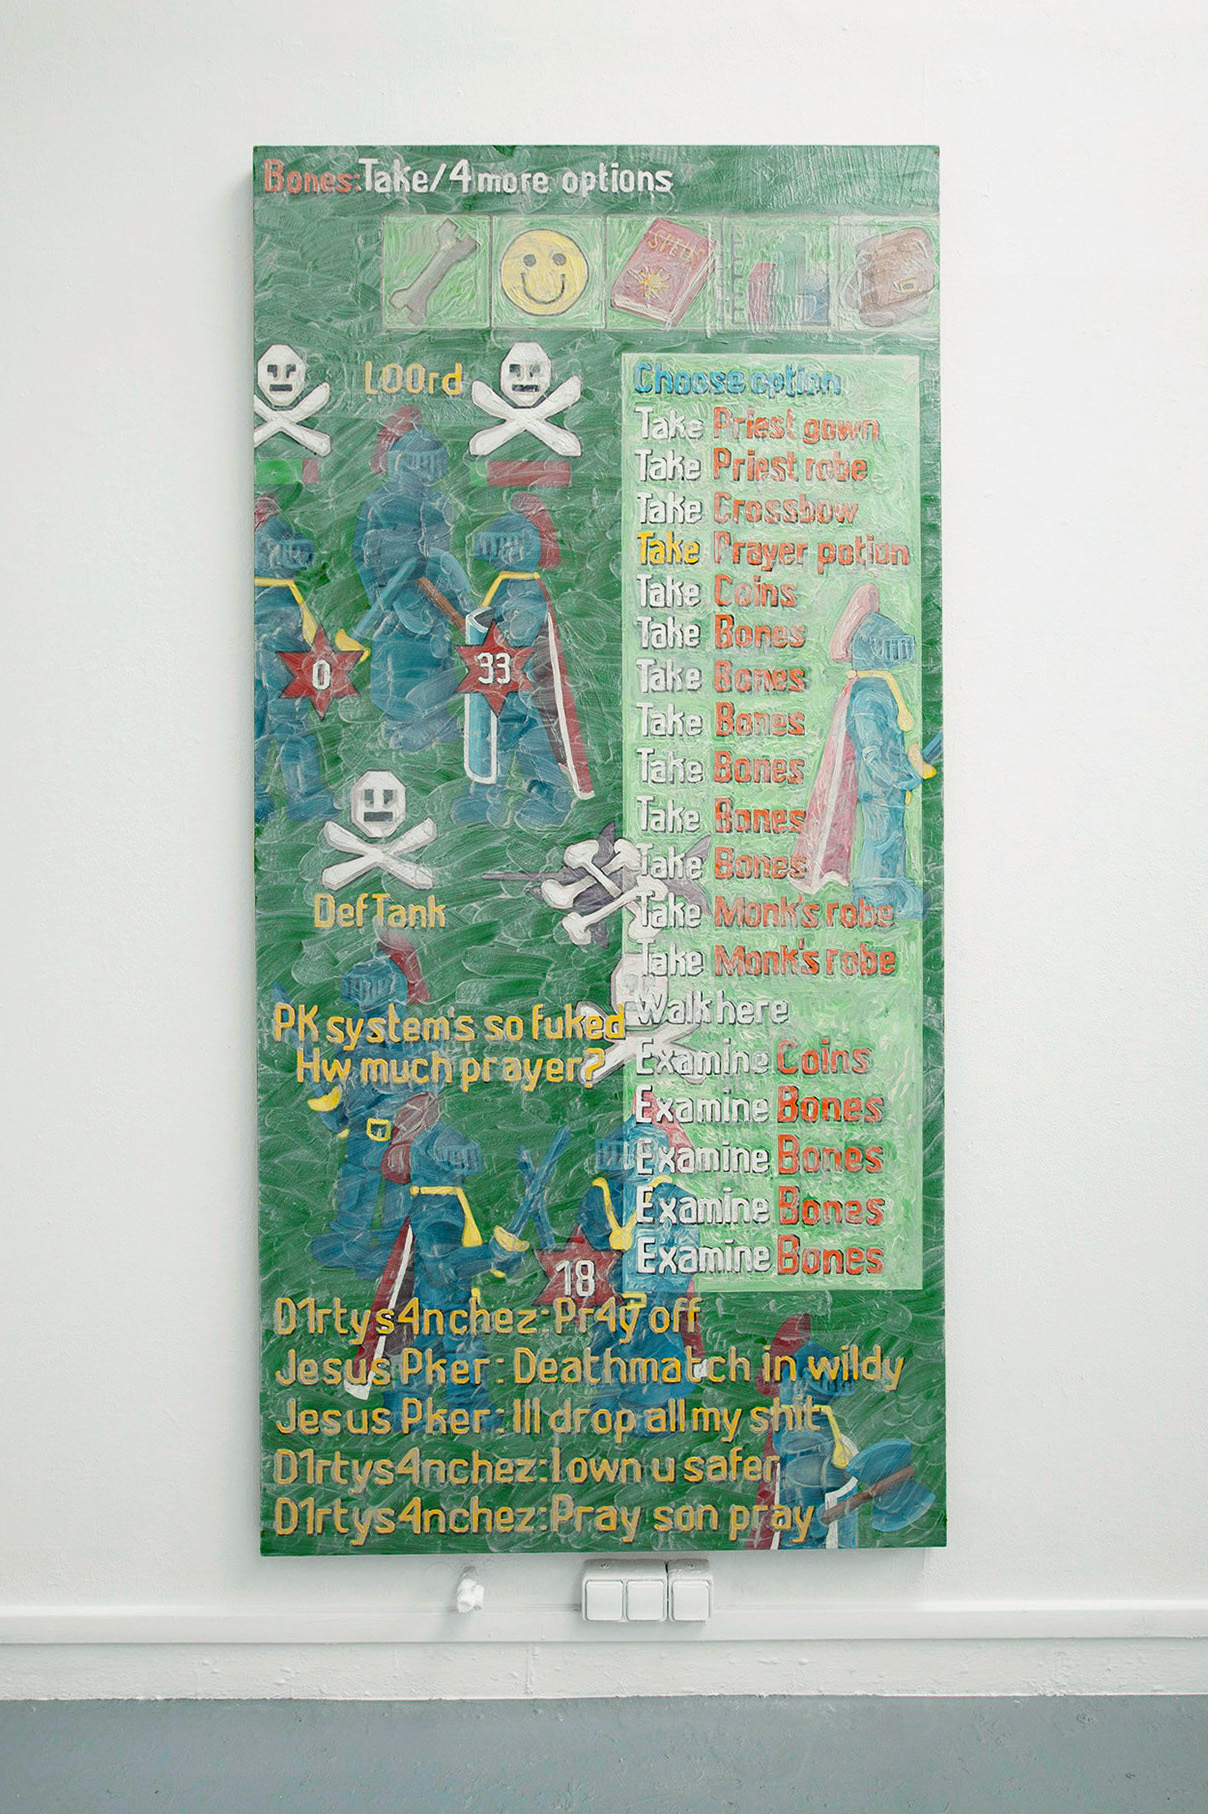 Bones:Take/4 more options
SPELL
L00rd
Choose option
Take Priest gown
Take Priest robe
Take Crossbow
Take Prayer potion
Take Coins
Take Bones
Take Bones
Take Bones
Take Bones
Take Bones
Take Bones
Take Monk's robe
Take Monk's robe
Walk here
Examine Coins
Examine Bones
Examine Bones
Examine Bones
Examine Bones
0
33
DefTank
PK system's so fuked
Hw much prayer?
18
D1rtys4nchez:Pr4y off
Jesus Pker: Deathmatch in wildy
Jesus Pker: Ill drop all my shit
D1rtys4nchez:I own u safer
D1rtys4nchez:Pray son pray